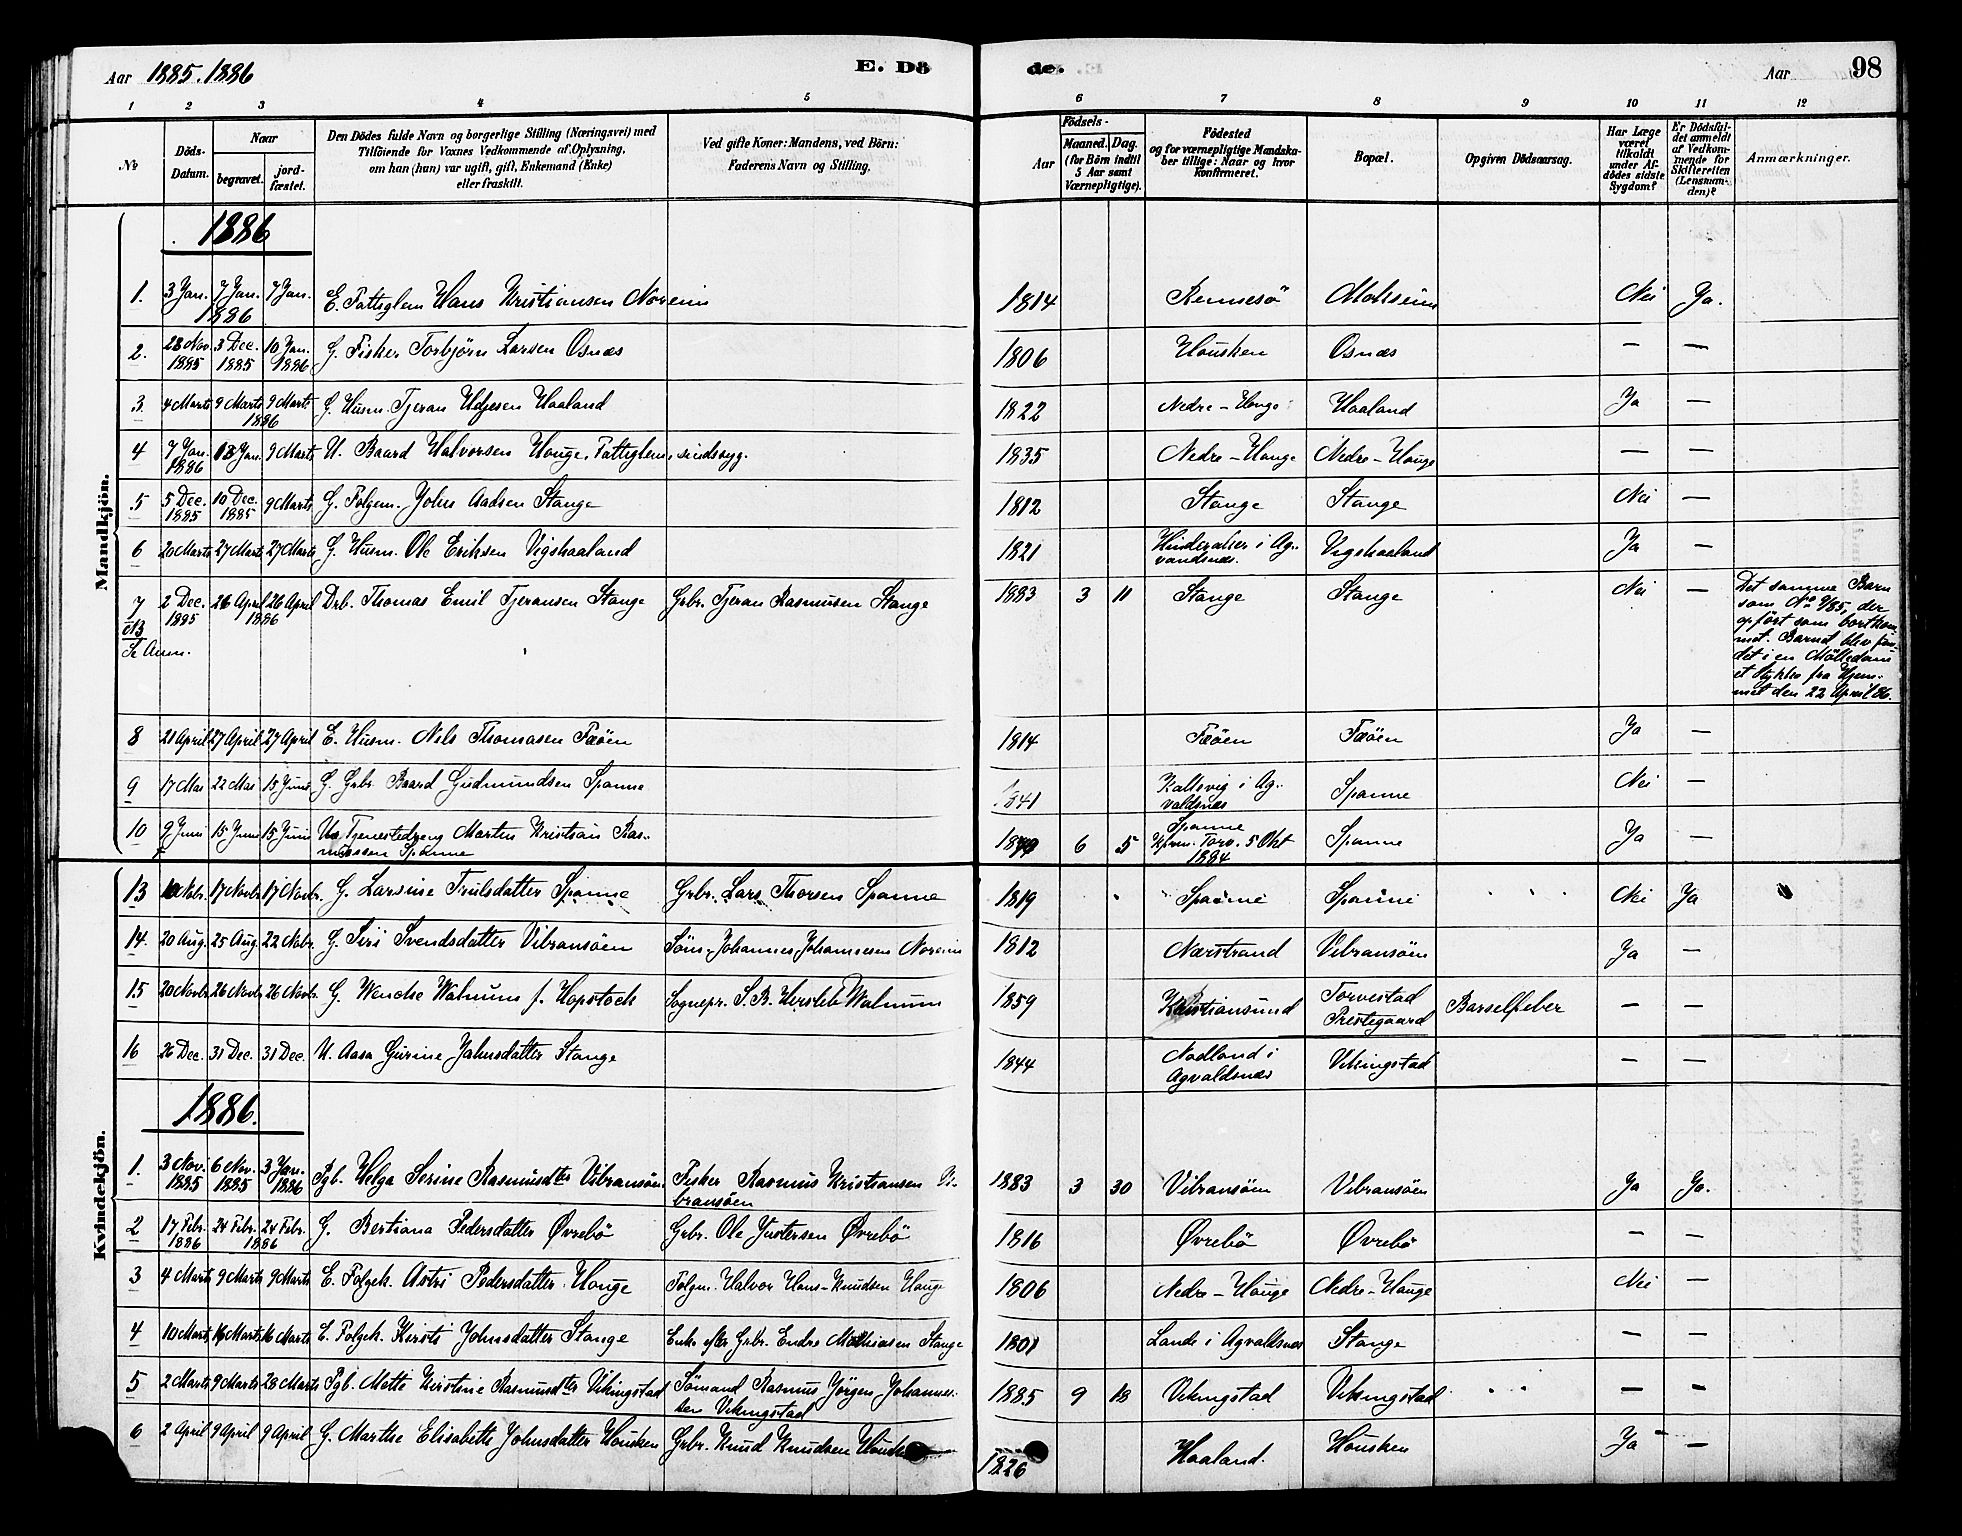 Aar 1885. 1886
E. Dö
de.
Aar
98
1 2 3 4 5 6 7 8 9 10 11 12
No
Döds-Datum.
Naar
begravet.
jord-fæstet.
Den Dödes fulde Navn og borgerlige Stilling (Næringsvei) med
Tilföiende for Voxnes Vedkommende af Oplysning,
om han (hun) var ugift, gift, Enkemand (Enke)
eller fraskilt.
Ved gifte Koner: Mandens, ved Börn:
Faderens Navn og Stilling.
Födsels-
Aar
Maaned. Dag.
(for Börn indtil
5 Aar samt
Værnepligtige).
Födested
og for værnepligtige Mandska-
ber tillige: Naar og hvor
Konfirmeret.
Bopæl.
Opgiven Dödsaarsag.
Har Læge
været
tilkaldt
under Af-
dödes sidste
Sygdom?
Er Dödsfal-
det anmeldt
af Vedkom-
mende for
Skifteretten
(Lensman-
den)?
Anmærkninger.
Mandkjön.
1886
1. 3 Jan. 7 Jan. 7 Jan. 1886 E. Fattiglem Hans Kristiansen Noreim 1814 Rennesö Mokseim Nei Ja.
2. 28 Nov. 1885 3 Dec. 1885 10 Jan. 1886 G. Fisker Torbjörn Larsen Osnæs 1806 Housken Osnæs — —
3. 4 Marts 9 Marts 9 Marts 1886 G. Husm. Tjeran Haaland 1822 Nedre-Houge Haaland Ja —
4 7 Jan. 1886 13 Jan. 9 Marts U. Baard Halvorsen Houge, Fattiglem, sindssyg. 1835 Nedre-Houge Nedre-Houge — —
5 5 Dec. 1885 10 Dec. 1885 9 Marts G. Folgem. John Aadsen Stange 1812 Stange Stange Nei —
6 20 Marts 27 Marts 27 Marts G. Husm. Ole Eriksen Vigshaaland 1821 Hinderaker i Ag-
vandsnæs. Vigshaaland Ja —
7 2 Dec. 1885 26 April 26 April 1886 Drb. Thomas Emil Tjeransen Stange Grbr. Tjeran Rasmussen Stange 1883 3 11 Stange Stange Nei —
NB
Se Anm.
Det samme Barn
som No 9/85, der
opfört som bortkom-
met. Barnet blev fun-
det i en Mölledam
et Stykke fra Hjem-
met den 22 April 86.
8 21 April 27 April 27 April E. Husm. Nils Thomasen Fæöen 1814 Fæöen Fæöen Ja —
9 17 Mai 22 Mai 15 Juni G. Grbr. Baard Gudmundsen Spanne 1841 Kallevig i Ag-
valdsnæs Spanne Nei —
10 9 Juni 15 Juni 15 Juni U. Tjenestedreng Martin Kristian Ras-
mussen Spanne 6 5 Spanne
Kfrm. Torv. 5 Okt
1884 Spanne Ja —
Kvindekjön.
13 10 Novbr. 17 Novbr. 17 Novbr. G. Larsine Trulsdatter Spanne Grbr. Lars Thorsen Spanne 1819 Spanne Spanne Nei Ja
14. 20 Aug. 25 Aug. 22 Nobr. G. Siri Svendsdatter Vibransöen Söm. Johannes Johannesen Noreim 1812 Nærstrand Vibransöen Ja —
15 20 Novbr. 26 Novbr. 26 Novbr. G. Wenche Walnum f. Hopstock Sognepr. S. B. Hersleb Walnum 1859 Kristiansund Torvestad
Prestegaard Barselfeber — —
16 26 Dec. 31 Dec. 31 Dec. U. Aasa Gurine Jahnsdatter Stange 1844 Nadland i
Agvaldsnæs Vikingstad — —
1886.
1. 3 Nov. 1885 6 Nov. 1885 3 Jan. 1886 Pgb. Helga Serine Rasmusdter Vibransöen Fisker Rasmus Kristiansen Vi-
bransöen 1883 3 30 Vibransöen Vibransöen Ja Ja.
2 17 Febr. 1886 24 Febr. 24 Febr. 1886 G. Bertiana Pedersdatter Øvrebö Grbr. Ole Øvrebö 1816 Øvrebö Øvrebö — —
3 4 Marts 9 Marts 9 Marts E. Folgek. Astri Pedersdatter Houge Folgm. Halvor Hans-Knudsen Houge 1806 Nedre-Houge Nedre-Houge Nei —
4 10 Marts 16 Marts 16 Marts E. Folgek. Kirsti Johnsdatter Stange Enke efter Grbr. Endre Mathiasen Stange 1801 Lande i Agvaldsnæs Stange — —
5 2 Marts 9 Marts 28 Marts Pgb. Mette Kirstine Rasmusdter Vikingstad Sömand Rasmus Jörgen Johannes-
sen Vikingstad 1885 9 18 Vikingstad Vikingstad — —
6 2 April 9 April 9 April G. Marthe Elisabeth Johnsdatter Housken Grbr. Knud Knudsen Housken 1826 Haaland. Housken Ja —